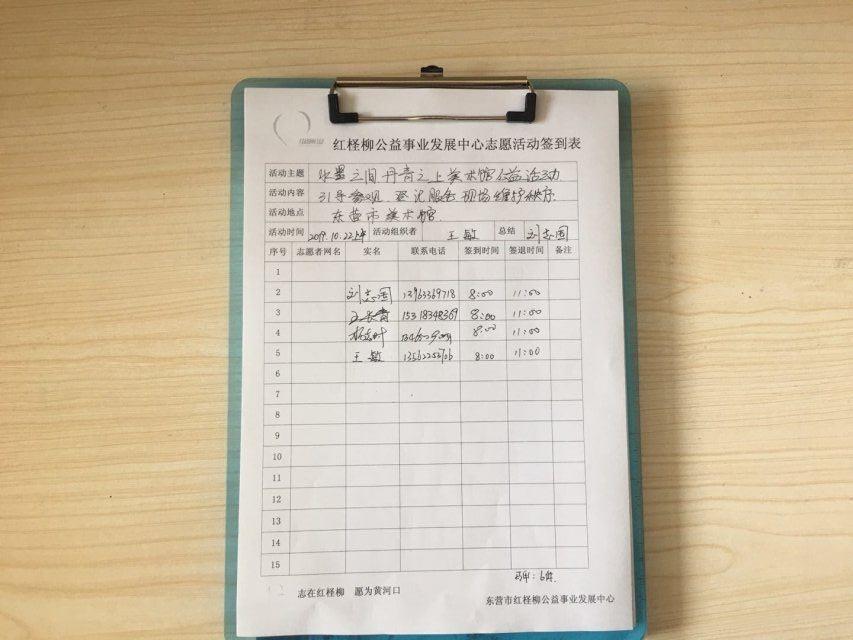 红柽柳公益事业发展中心志愿活动签到表
活动主题 水墨之间丹青之上美术馆公益活动
活动内容 引导参观 登记服务 现场维护秩序
活动地点 东营市美术馆
活动时间 2019.10.22上午 活动组织者 王敏 总结 刘志国
序号 志愿者网名 实名 联系电话 签到时间 签退时间 备注
1
2 刘志国 13963369718 8:00 11:00
3 15318348369 8:00 11:00
4 8:00 11:00
5 王敏 8:00 11:00
6
7
8
9
10
11
12
13
14
15
志在红柽柳 愿为黄河口
东营市红柽柳公益事业发展中心